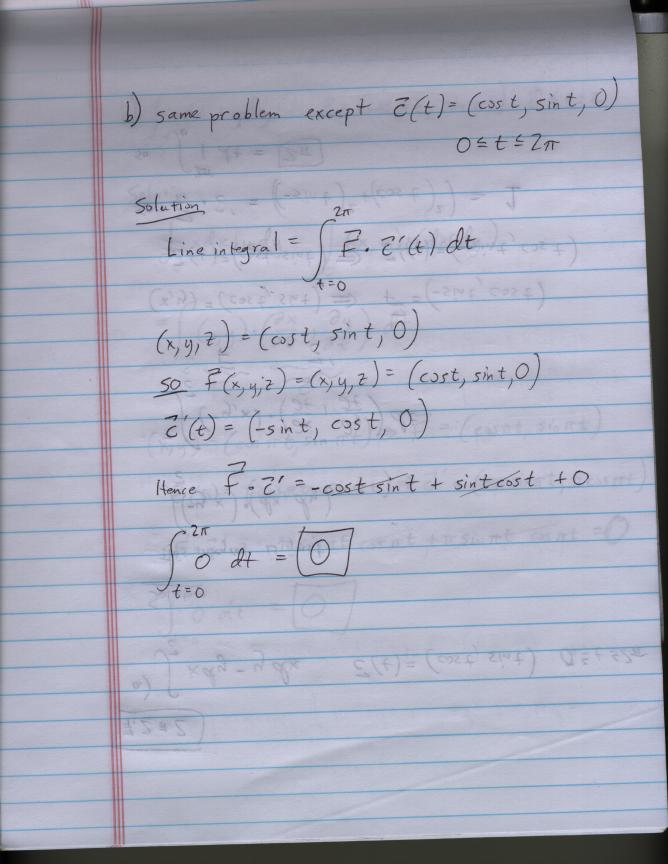 b) same problem except c⃗(t) = (cos t, sin t, 0)
0 ≤ t ≤ 2π
Solution
Line integral = ∫_{t=0}^{2π} F⃗ · c⃗'(t) dt
(x, y, z) = (cos t, sin t, 0)
so F⃗(x, y, z) = (x, y, z) = (cos t, sin t, 0)
c⃗'(t) = (-sin t, cos t, 0)
Hence F⃗ · c⃗' = -cos t sin t + sin t cos t + 0
∫_{t=0}^{2π} 0 dt = 0